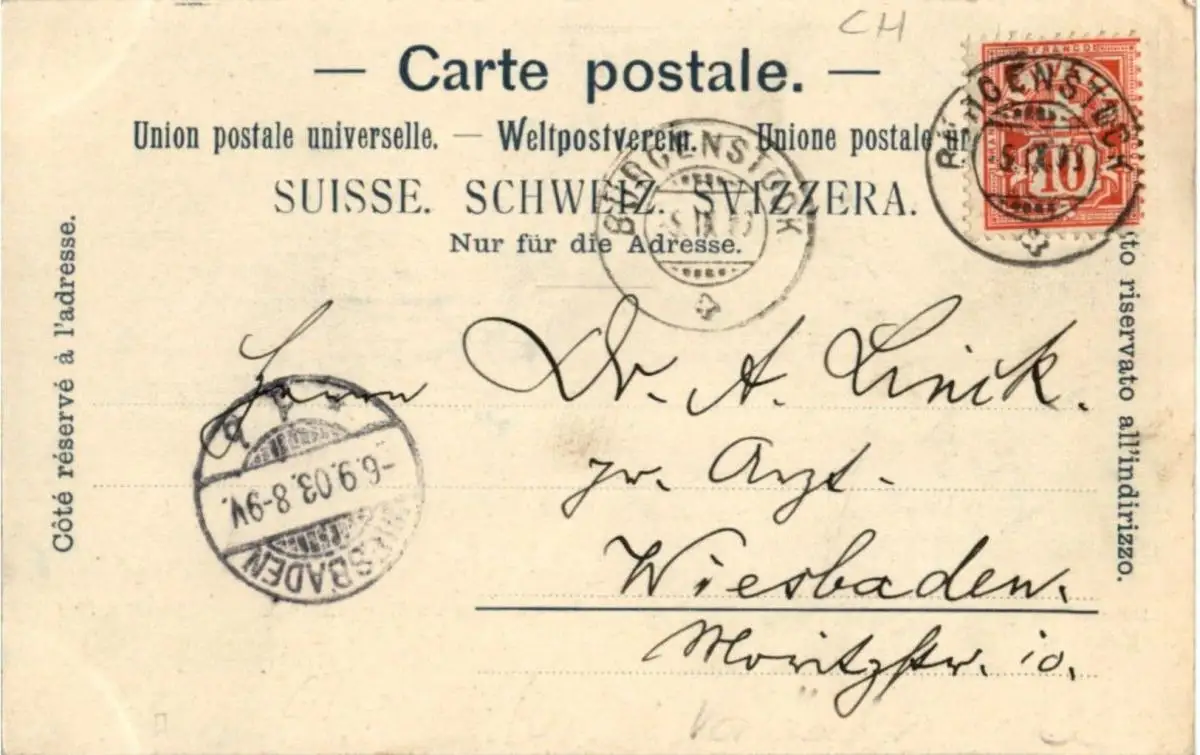 CH
— Carte postale. —
Union postale universelle. — Weltpostverein. — Unione postale un
SUISSE. SCHWEIZ. SVIZZERA.
Nur für die Adresse.
Côté réservé à l'adresse.
to riservato all'indirizzo.
FRANCO
10
BÜRGENSTOCK
5.IX.03
BÜRGENSTOCK
5.IX.03
Herrn Dr. A. Linck.
pr. Arzt.
Wiesbaden.
Moritzstr. 10.
WIESBADEN
-6.9.03.8-9V.